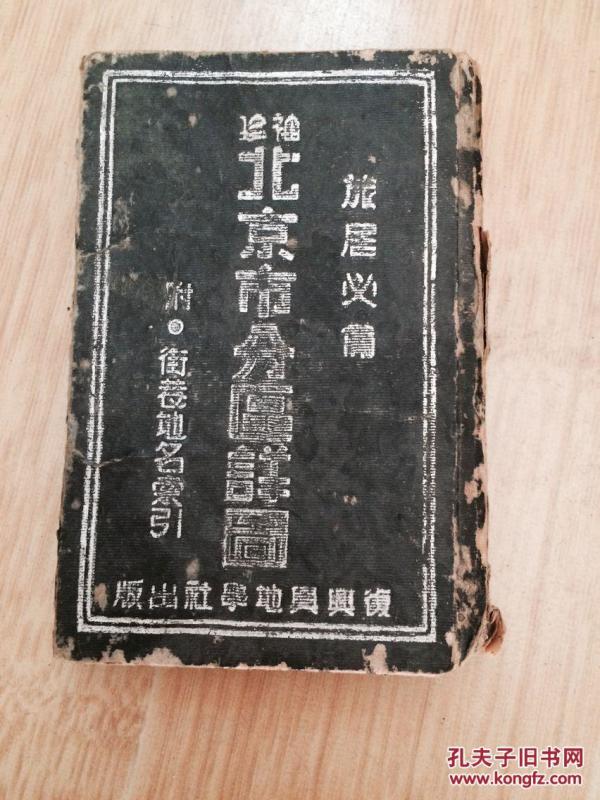 旅居必備
袖珍
北京市分區詳圖
附·街巷地名索引
復興輿地學社出版
孔夫子旧书网
www.kongfz.com